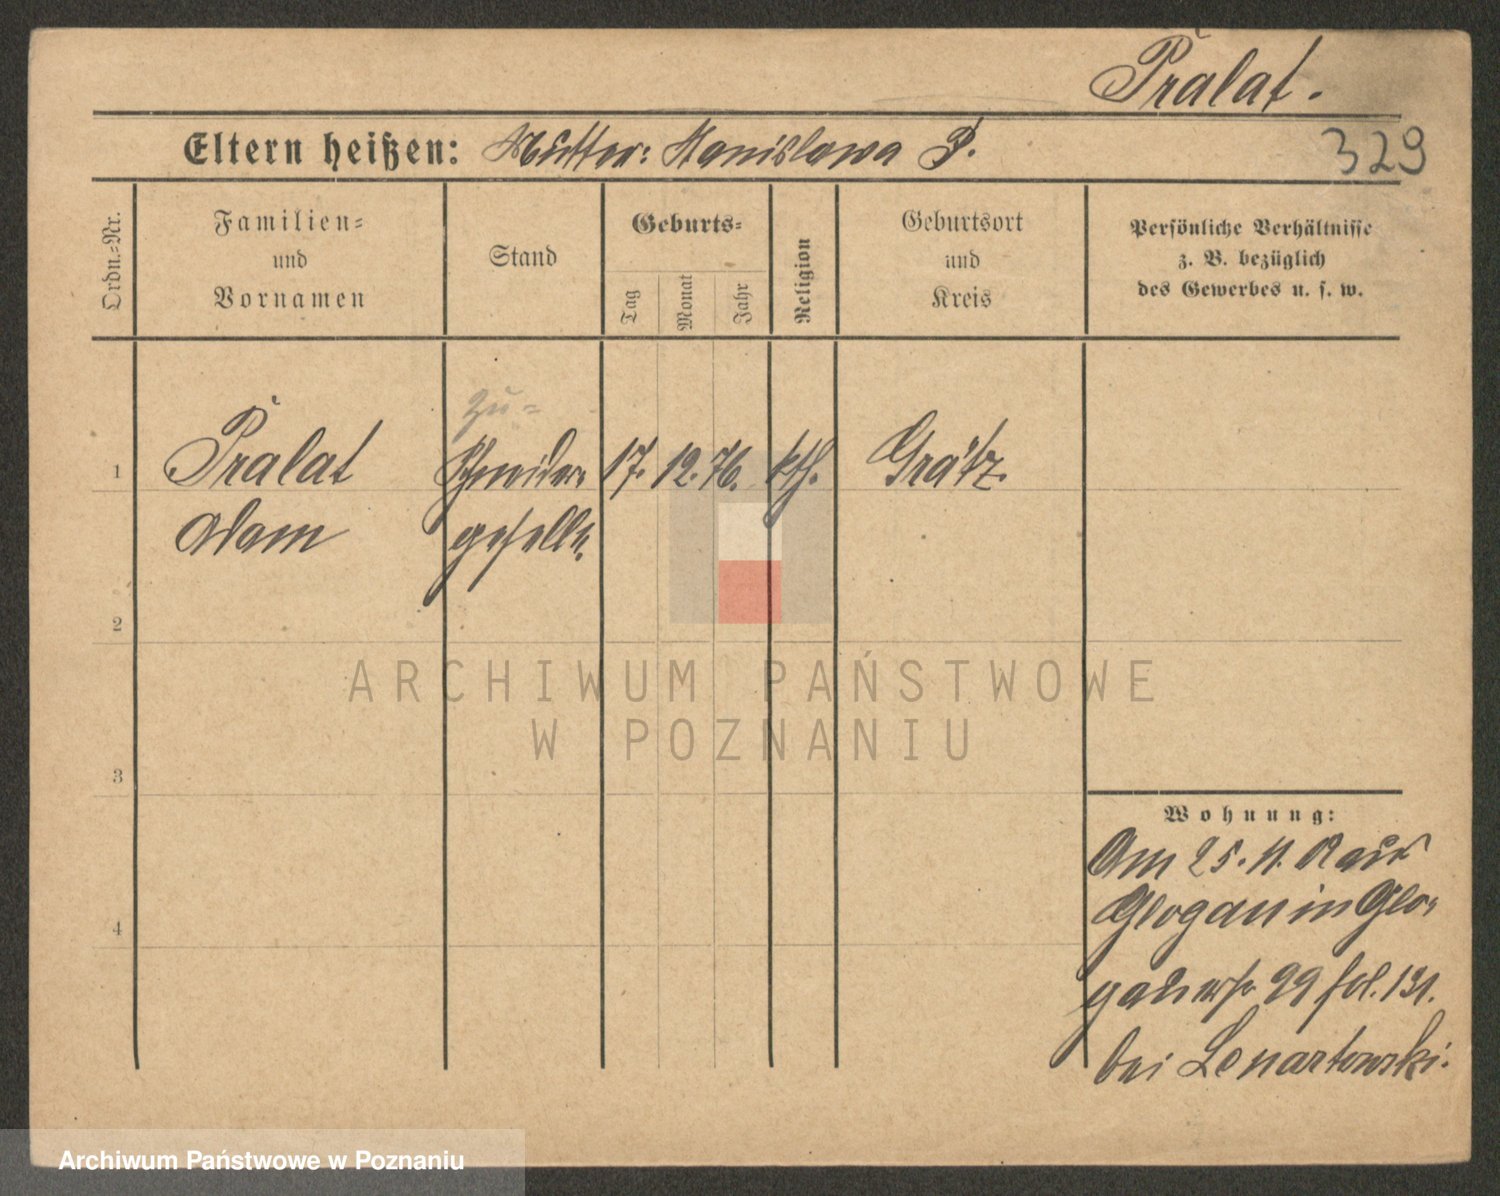 Pralat.
329
Eltern heißen: Mutter: Stanislawa P.
Ordn.=Nr.
Familien=
und
Vornamen
Stand
Geburts=
Tag
Monat
Jahr
Religion
Geburtsort
und
Kreis
Persönliche Verhältnisse
z. B. bezüglich
des Gewerbes u. s. w.
Zu-
1 Pralat Schneider- 17. 12. 76. kth. Grätz.
Adam geselle.
2
3
4
ARCHIWUM PAŃSTWOWE
W POZNANIU
Wohnung:
Am 25. 11. 12 aus
Glogau in Glo-
gauerstr. 99 fol. 131.
bei Lenartowski.
Archiwum Państwowe w Poznaniu